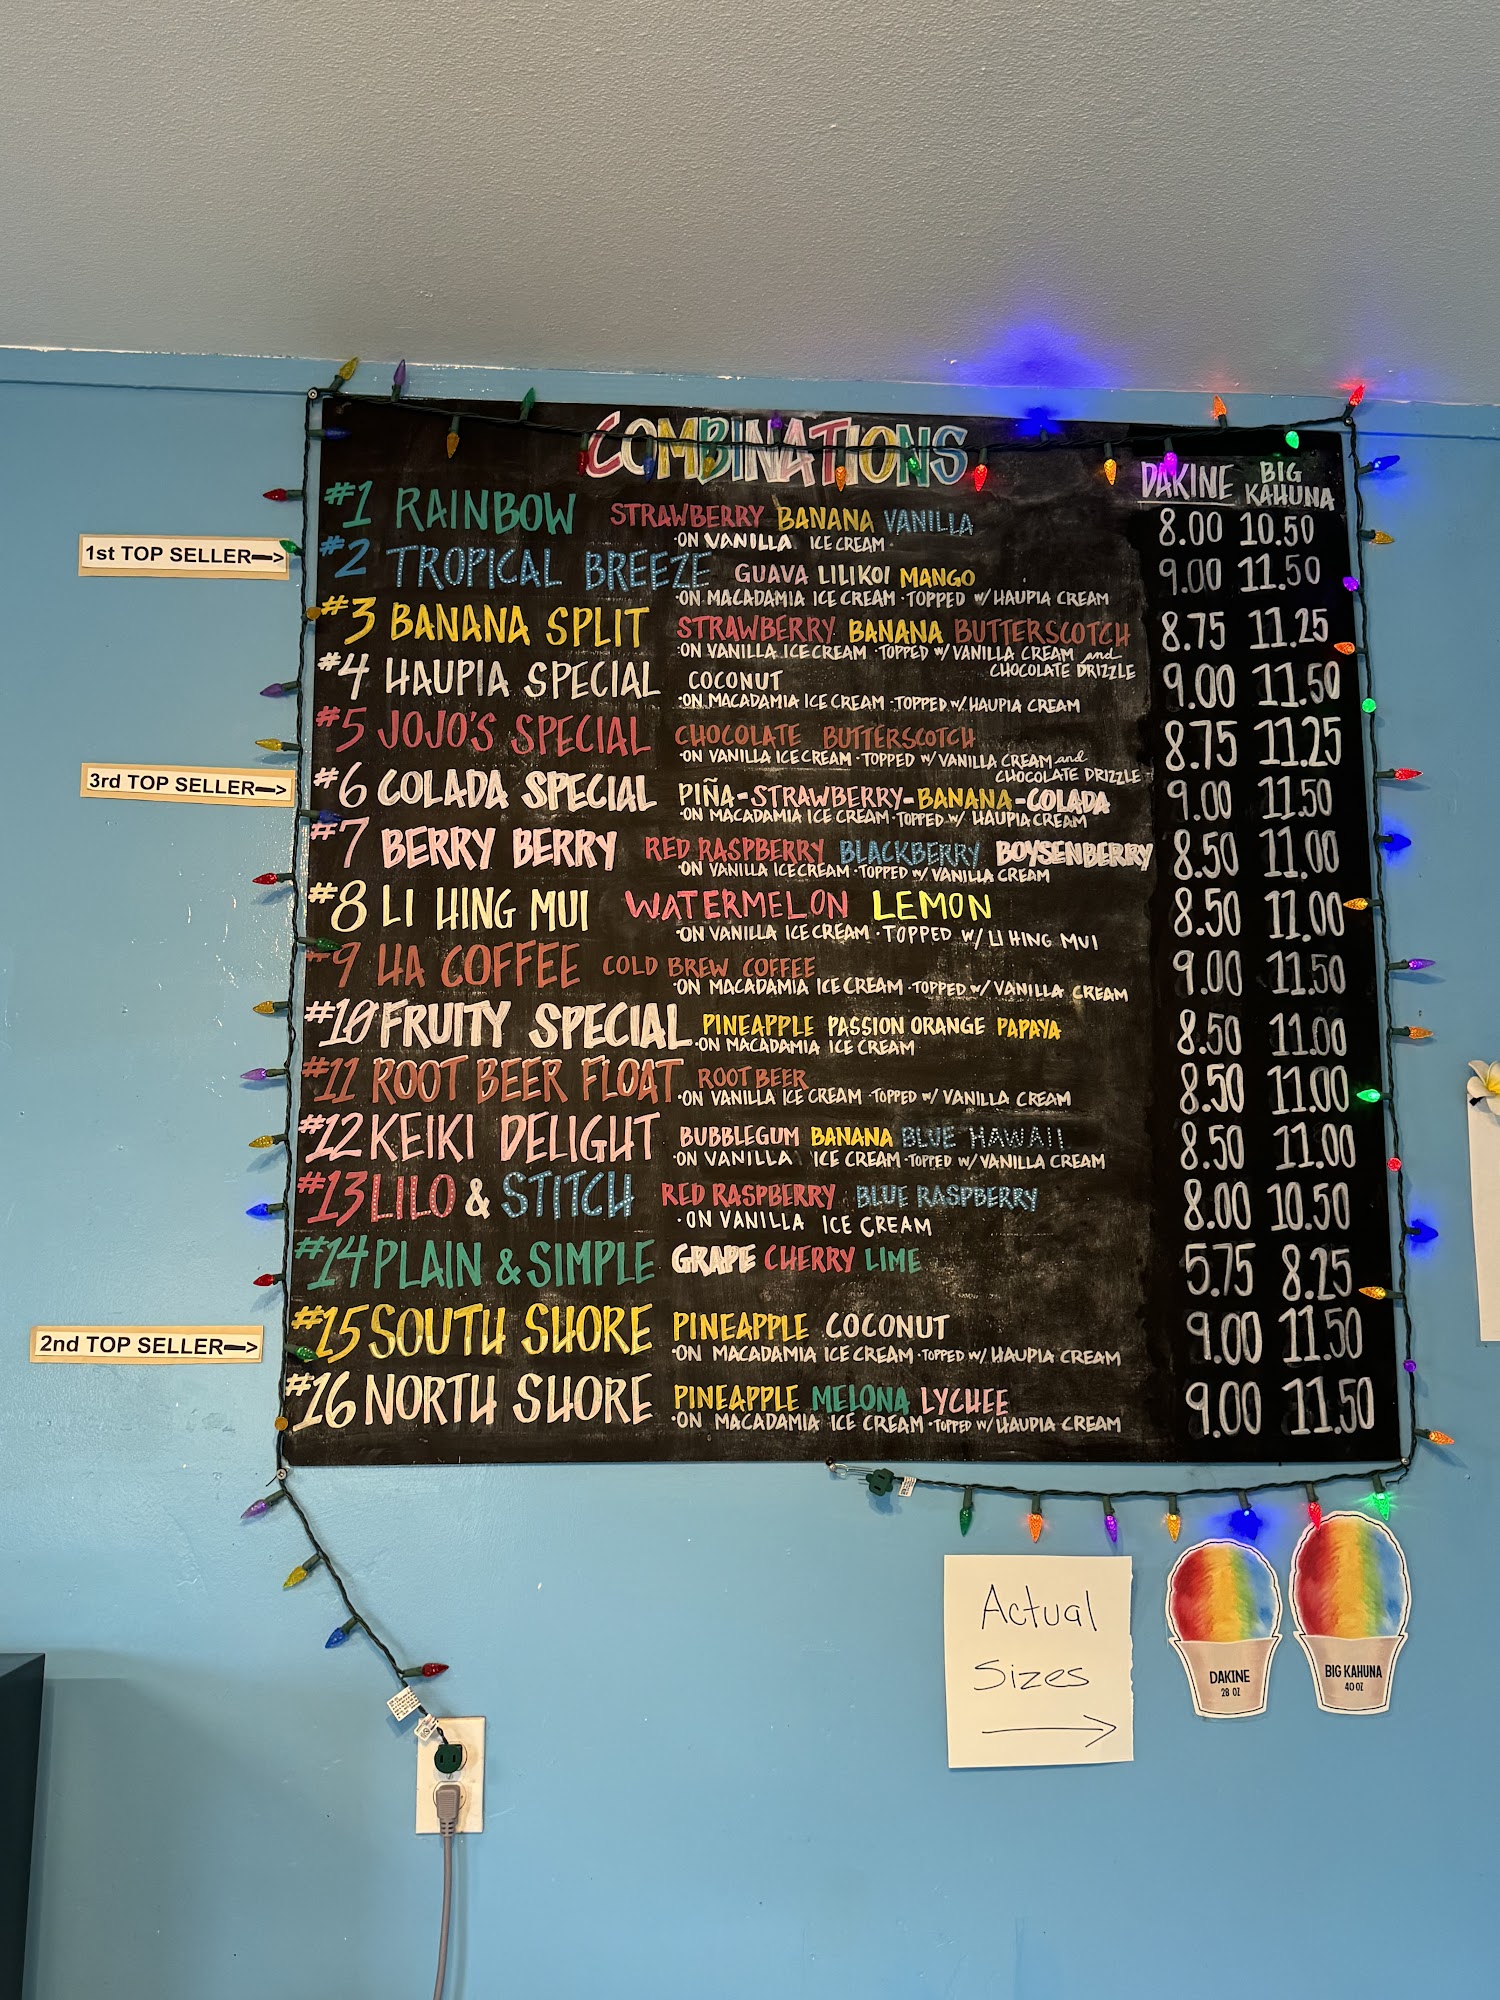 COMBINATIONS
DAKINE BIG KAHUNA
#1 RAINBOW STRAWBERRY BANANA VANILLA 8.00 10.50
·ON VANILLA ICE CREAM·
1st TOP SELLER-->
#2 TROPICAL BREEZE GUAVA LILIKOI MANGO 9.00 11.50
·ON MACADAMIA ICE CREAM ·TOPPED W/ HAUPIA CREAM
#3 BANANA SPLIT STRAWBERRY BANANA BUTTERSCOTCH 8.75 11.25
·ON VANILLA ICE CREAM ·TOPPED W/ VANILLA CREAM and
CHOCOLATE DRIZZLE
#4 HAUPIA SPECIAL COCONUT 9.00 11.50
·ON MACADAMIA ICE CREAM ·TOPPED W/ HAUPIA CREAM
#5 JOJO'S SPECIAL CHOCOLATE BUTTERSCOTCH 8.75 11.25
·ON VANILLA ICE CREAM ·TOPPED W/ VANILLA CREAM and
CHOCOLATE DRIZZLE
3rd TOP SELLER-->
#6 COLADA SPECIAL PIÑA-STRAWBERRY-BANANA-COLADA 9.00 11.50
·ON MACADAMIA ICE CREAM ·TOPPED W/ HAUPIA CREAM
#7 BERRY BERRY RED RASPBERRY BLACKBERRY BOYSENBERRY 8.50 11.00
·ON VANILLA ICE CREAM ·TOPPED W/ VANILLA CREAM
#8 LI HING MUI WATERMELON LEMON 8.50 11.00
·ON VANILLA ICE CREAM ·TOPPED W/ LI HING MUI
#9 HA COFFEE COLD BREW COFFEE 9.00 11.50
·ON MACADAMIA ICE CREAM ·TOPPED W/ VANILLA CREAM
#10 FRUITY SPECIAL PINEAPPLE PASSION ORANGE PAPAYA 8.50 11.00
·ON MACADAMIA ICE CREAM
#11 ROOT BEER FLOAT ROOT BEER 8.50 11.00
·ON VANILLA ICE CREAM ·TOPPED W/ VANILLA CREAM
#12 KEIKI DELIGHT BUBBLEGUM BANANA BLUE HAWAII 8.50 11.00
·ON VANILLA ICE CREAM ·TOPPED W/ VANILLA CREAM
#13 LILO & STITCH RED RASPBERRY BLUE RASPBERRY 8.00 10.50
·ON VANILLA ICE CREAM
#14 PLAIN & SIMPLE GRAPE CHERRY LIME 5.75 8.25
2nd TOP SELLER-->
#15 SOUTH SHORE PINEAPPLE COCONUT 9.00 11.50
·ON MACADAMIA ICE CREAM ·TOPPED W/ HAUPIA CREAM
#16 NORTH SHORE PINEAPPLE MELONA LYCHEE 9.00 11.50
·ON MACADAMIA ICE CREAM ·TOPPED W/ HAUPIA CREAM
Actual
Sizes
DAKINE
28 OZ
BIG KAHUNA
40 OZ